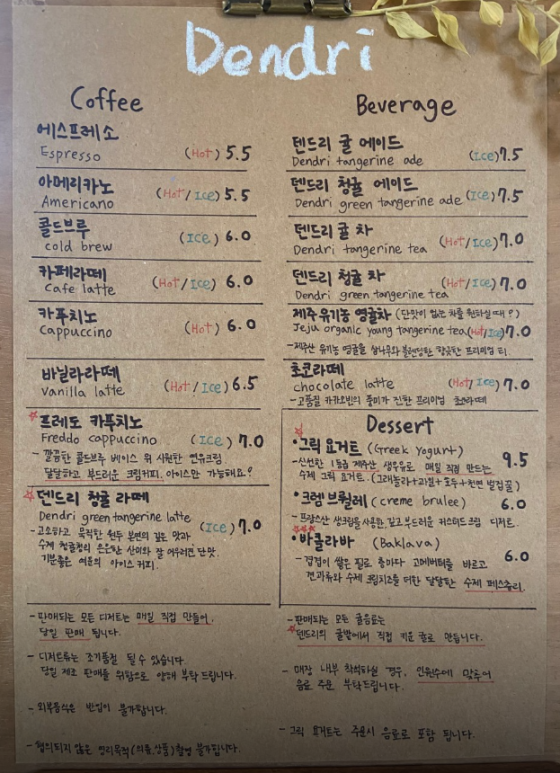 Dendri
Coffee
에스프레소
Espresso (Hot) 5.5
아메리카노
Americano (Hot/Ice) 5.5
콜드브루
cold brew (ICE) 6.0
카페라떼
Cafe latte (Hot/Ice) 6.0
카푸치노
Cappuccino (Hot) 6.0
바닐라라떼
Vanilla latte (Hot/Ice) 6.5
프레도 카푸치노
Freddo cappuccino (ICE) 7.0
- 깔끔한 콜드브루 베이스 위 시원한 연유크림
달달하고 부드러운 크림커피. 아이스만 가능해요?
덴드리 청귤 라떼
Dendri green tangerine latte (ICE) 7.0
- 고소하고 묵직한 원두 본연의 깊은 맛과
수제 청귤청의 은은한 산미와 잘 어우러면 단맛.
기분좋은 여운의 아이스 커피.
- 판매되는 모든 디저트는 매일 직접 만들어,
당일 판매 됩니다.
- 디저트류는 조기품절 될 수 있습니다.
당일 제조 판매를 위함으로 양해 부탁드립니다.
- 외부음식은 반입이 불가합니다.
- 협의되지 않은 영리목적(의류,상품)촬영 불가합니다.
Beverage
덴드리 귤 에이드
Dendri tangerine ade (ICE) 7.5
덴드리 청귤 에이드
Dendri green tangerine ade (ICE) 7.5
덴드리 귤 차
Dendri tangerine tea (Hot/ICE) 7.0
덴드리 청귤 차
Dendri green tangerine tea (Hot/ICE) 7.0
제주유기농 영귤차 (단맛이 없는 차를 원하실 때?)
Jeju organic young tangerine tea (Hot/ICE) 7.0
- 제주산 유기농 영귤을 블렌딩한 향긋한 프리미엄 티
초코라떼
chocolate latte (Hot/ICE) 7.0
- 고품질 카카오빈의 풍미가 진한 프리미엄 초코라떼
Dessert
•그릭 요거트 (Greek Yogurt) 9.5
- 신선한 1등급 제주산 생우유로 매일 직접 만드는
수제 그릭 요거트. (그래놀라+과일+호두+천연 벌집꿀)
•크렘 브륄레 (creme brulee) 6.0
- 프랑스산 생크림을 사용한 밀크 부드러운 커스터드크림 디저트.
•바클라바 (Baklava) 6.0
- 겹겹이 쌓은 필로 층마다 고메버터를 바르고
견과류와 수제 크림치즈를 더한 달달한 수제 페스츄리.
- 판매되는 모든 귤음료는
덴드리의 귤밭에서 직접 키운 귤로 만듭니다.
- 매장 내부 착석하실 경우, 인원수에 맞추어
음료 주문 부탁드립니다.
- 그릭 요거트는 주문시 음료로 포함 됩니다.